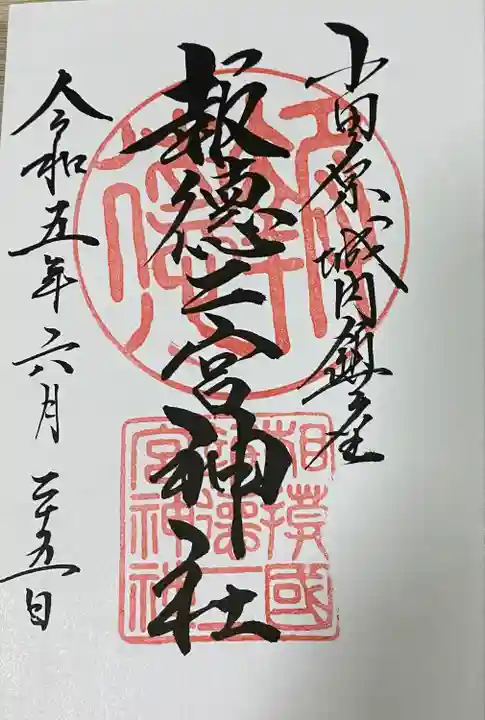 小田原城内鎮座
報徳二宮神社
令和五年六月二十五日
相模國
報徳二
宮神社